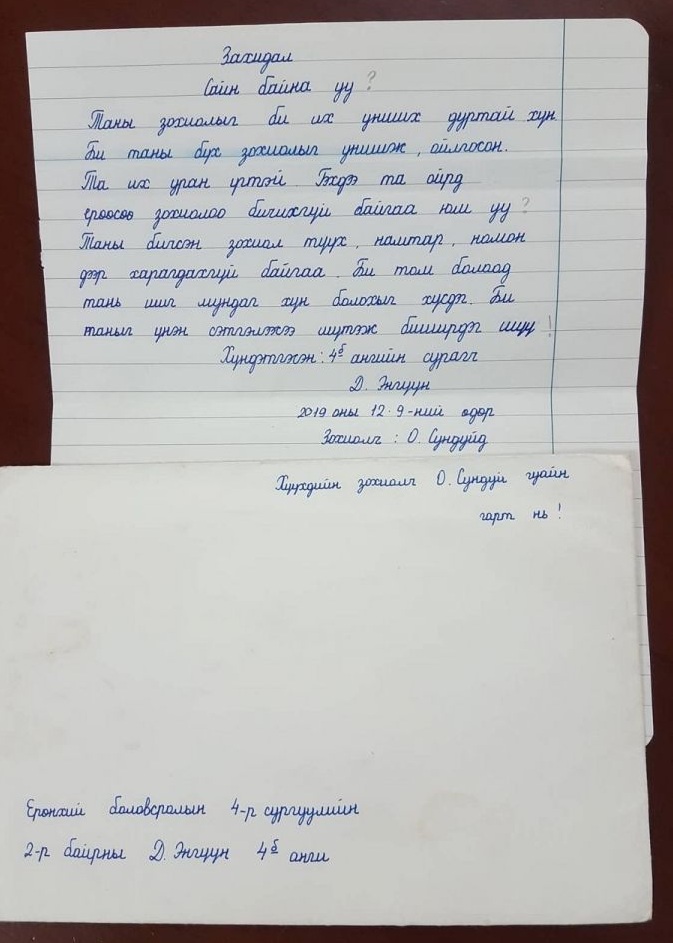 Захидал
Сайн байна уу?
Таны зохиолыг би их унших дуртай хүн
Би таны бүх зохиолыг уншиж, ойлгосон.
Та их уран үгтэй. Гэхдээ та ойрд
ерөөсөө зохиолоо бичихгүй байгаа юм уу?
Таны бичсэн зохиол түүх, намтар, номон
дээр харагдахгүй байгаа. Би том болоод
тань шиг мундаг хүн болохыг хүсдэг. Би
таныг үнэн сэтгэлээсээ шүтэж биширдэг шүү!
Хүндэтгэсэн: 4б ангийн сурагч
Д. Энгүүн
2019 оны 12.9-ний өдөр
Зохиолч: О. Сундуйд
Хүүхдийн зохиолч О. Сундуй гуайн
гарт нь!
Ерөнхий боловсролын 4-р сургуулийн
2-р байрны Д. Энгүүн 4б анги